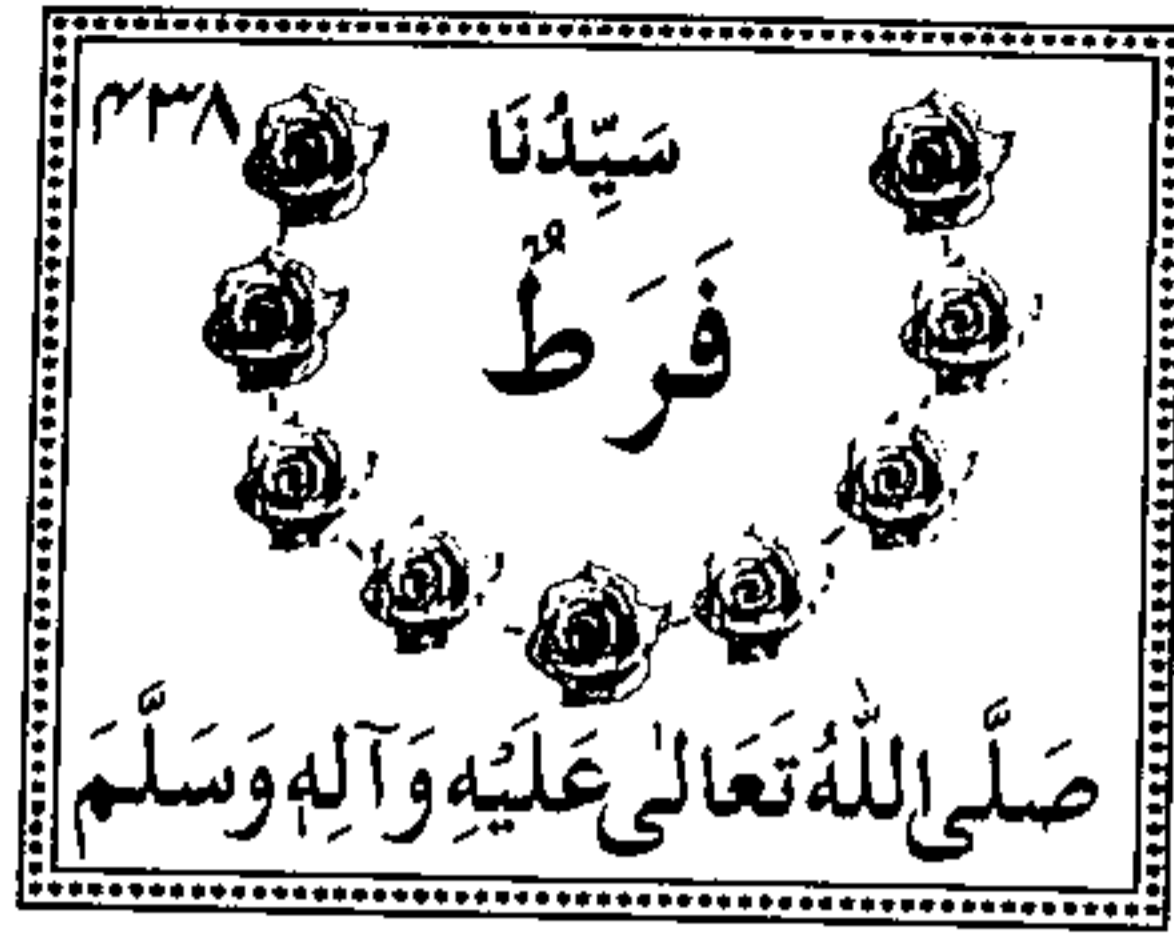 ۴۳۸
سَيِّدُنَا
فَرَطٌ
صَلَّى اللّٰهُ تَعَالٰى عَلَيْهِ وَآلِهٖ وَسَلَّمَ